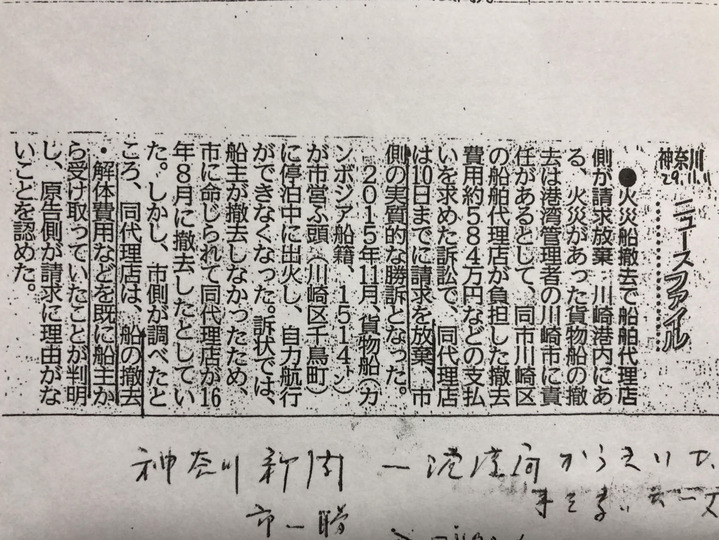 神奈川
29.11.11
ニュースファイル
●火災船撤去で船舶代理店
側が請求放棄 川崎港内にあ
る、火災があった貨物船の撤
去は港湾管理者の川崎市に責
任があるとして、同市川崎区
の船舶代理店が負担した撤去
費用約584万円などの支払
いを求めた訴訟で、同代理店
は10日までに請求を放棄、市
側の実質的な勝訴となった。
2015年11月、貨物船(カ
ンボジア船籍、1514㌧)
が市営ふ頭(川崎区千鳥町)
に停泊中に出火し、自力航行
ができなくなった。訴状では、
船主が撤去しなかったため、
市に命じられて同代理店が16
年8月に撤去したとしてい
た。しかし、市側が調べたと
ころ、同代理店は、船の撤去
・解体費用などを既に船主か
ら受け取っていたことが判明
し、原告側が請求に理由がな
いことを認めた。
神奈川新聞 ー港湾局からきいた